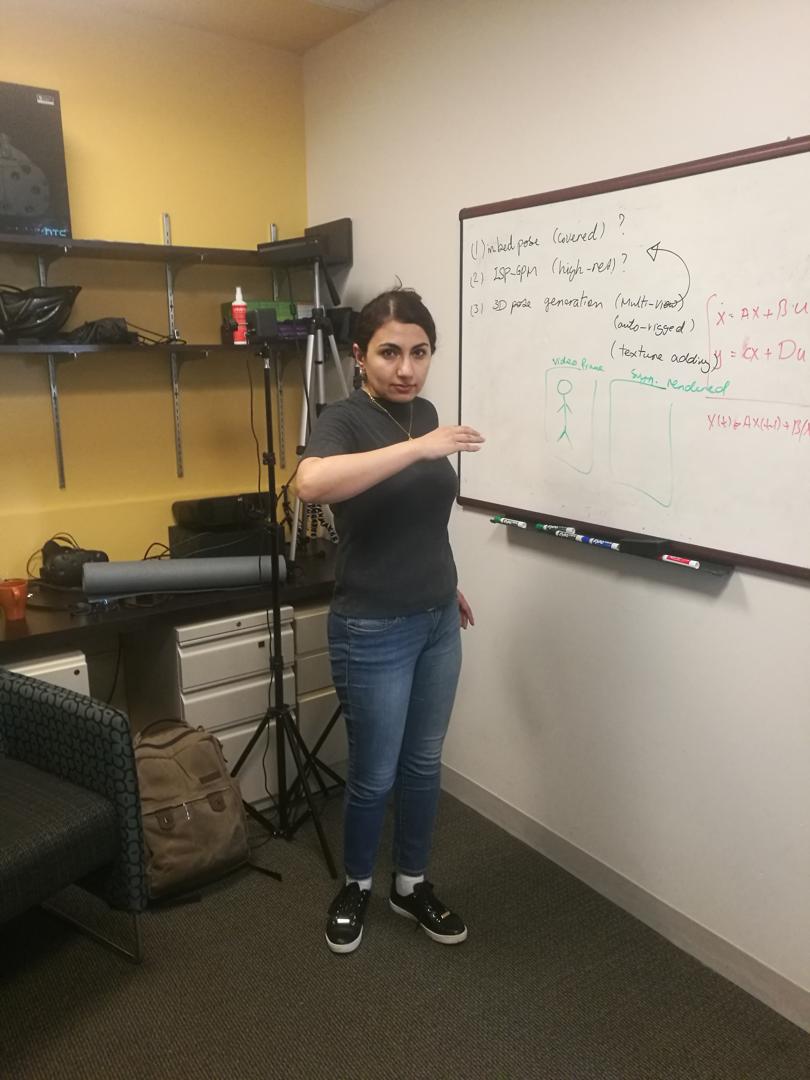 (1) in bed pose (covered) ?
(2) ISP-GPM (high-res) ?
(3) 3D pose generation (Multi-view)
(auto-rigged)
(texture adding)
video frame
rendered
ẋ = AX + B u
y = Cx + Du
HTC